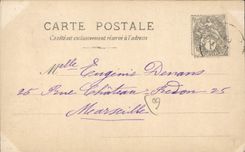 CARTE POSTALE
Ce côté est exclusivement réservé à l'adresse
Mlle Eugénie Devans
25 Rue Château-Redon 25
Marseille